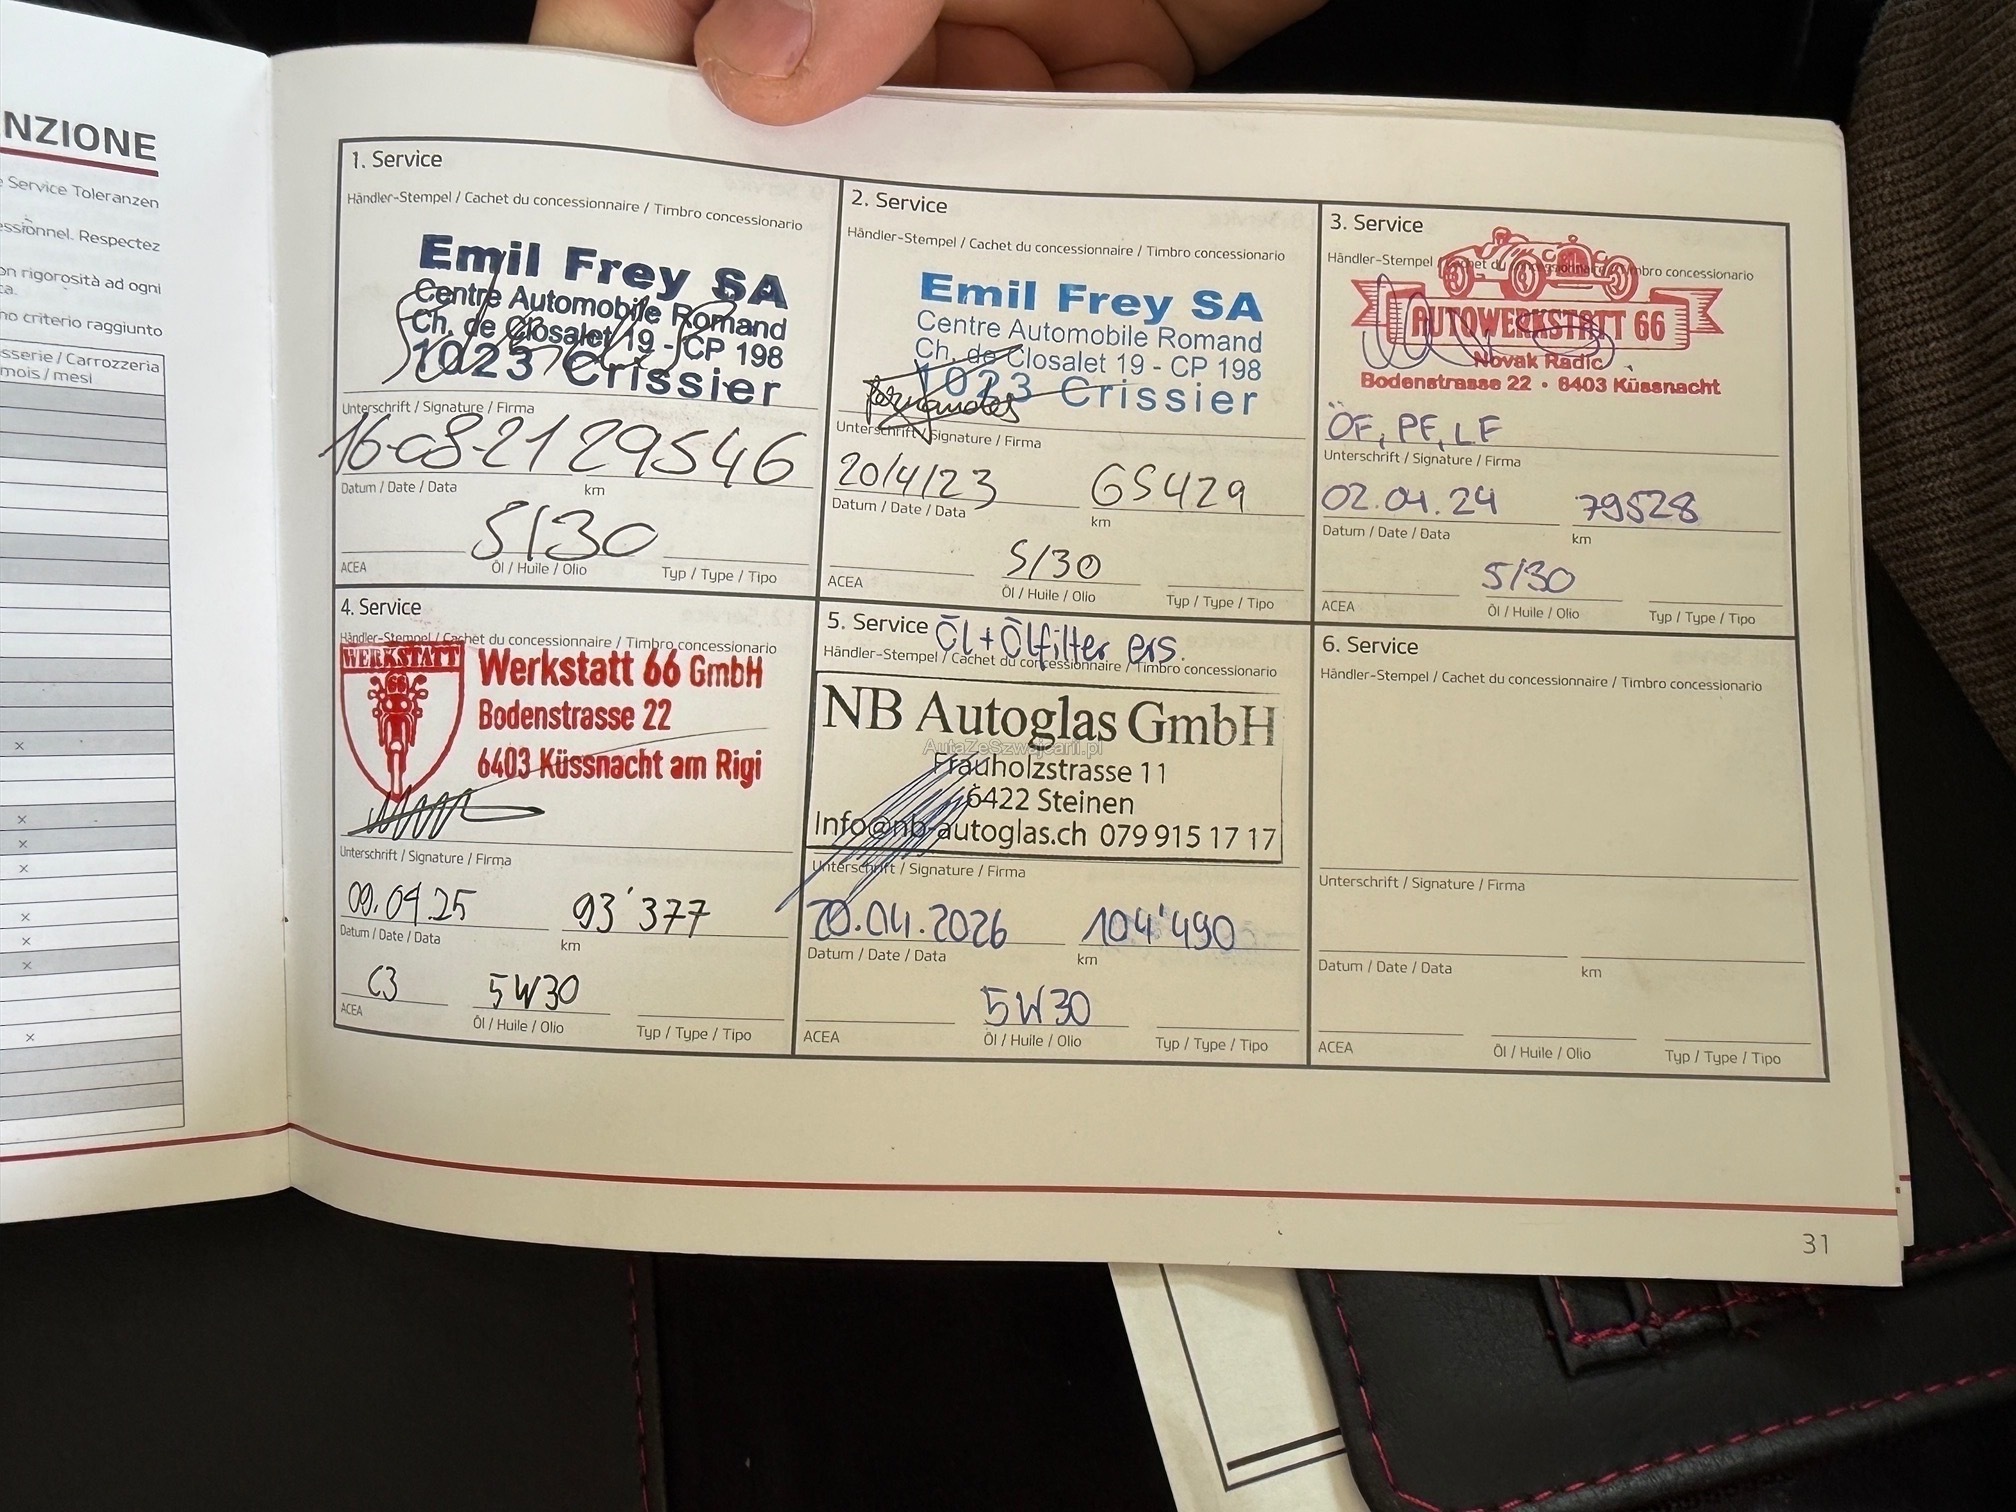 NZIONE
Service Toleranzen
essionnel. Respectez
on rigorosità ad ogni
ta.
no criterio raggiunto
sserie / Carrozzeria
mois / mesi
x
x
x
x
x
x
x
x
1. Service
Händler-Stempel / Cachet du concessionnaire / Timbro concessionario
Emil Frey SA
Centre Automobile Romand
Ch. de Closalet 19 - CP 198
1023 Crissier
Unterschrift / Signature / Firma
16-08-21 29546
Datum / Date / Data km
5/30
ACEA Öl / Huile / Olio Typ / Type / Tipo
2. Service
Händler-Stempel / Cachet du concessionnaire / Timbro concessionario
Emil Frey SA
Centre Automobile Romand
Ch. de Closalet 19 - CP 198
1023 Crissier
Fernandes
Unterschrift / Signature / Firma
20/4/23 65429
Datum / Date / Data km
5/30
ACEA Öl / Huile / Olio Typ / Type / Tipo
3. Service
Händler-Stempel / Cachet du concessionnaire / Timbro concessionario
AUTOWERKSTATT 66
Novak Radic
Bodenstrasse 22 • 6403 Küssnacht
ÖF, PF, LF
Unterschrift / Signature / Firma
02.04.24 79528
Datum / Date / Data km
5/30
ACEA Öl / Huile / Olio Typ / Type / Tipo
4. Service
Händler-Stempel / Cachet du concessionnaire / Timbro concessionario
WERKSTATT
66
Werkstatt 66 GmbH
Bodenstrasse 22
6403 Küssnacht am Rigi
Unterschrift / Signature / Firma
09.04.25 93'377
Datum / Date / Data km
C3 5W30
ACEA Öl / Huile / Olio Typ / Type / Tipo
5. Service Öl + Ölfilter ers.
Händler-Stempel / Cachet du concessionnaire / Timbro concessionario
NB Autoglas GmbH
AutaZeSzwajcarii.pl
Frauholzstrasse 11
6422 Steinen
Info@nb-autoglas.ch 079 915 17 17
Unterschrift / Signature / Firma
20.04.2026 104'490
Datum / Date / Data km
5W30
ACEA Öl / Huile / Olio Typ / Type / Tipo
6. Service
Händler-Stempel / Cachet du concessionnaire / Timbro concessionario
Unterschrift / Signature / Firma
Datum / Date / Data km
ACEA Öl / Huile / Olio Typ / Type / Tipo
31